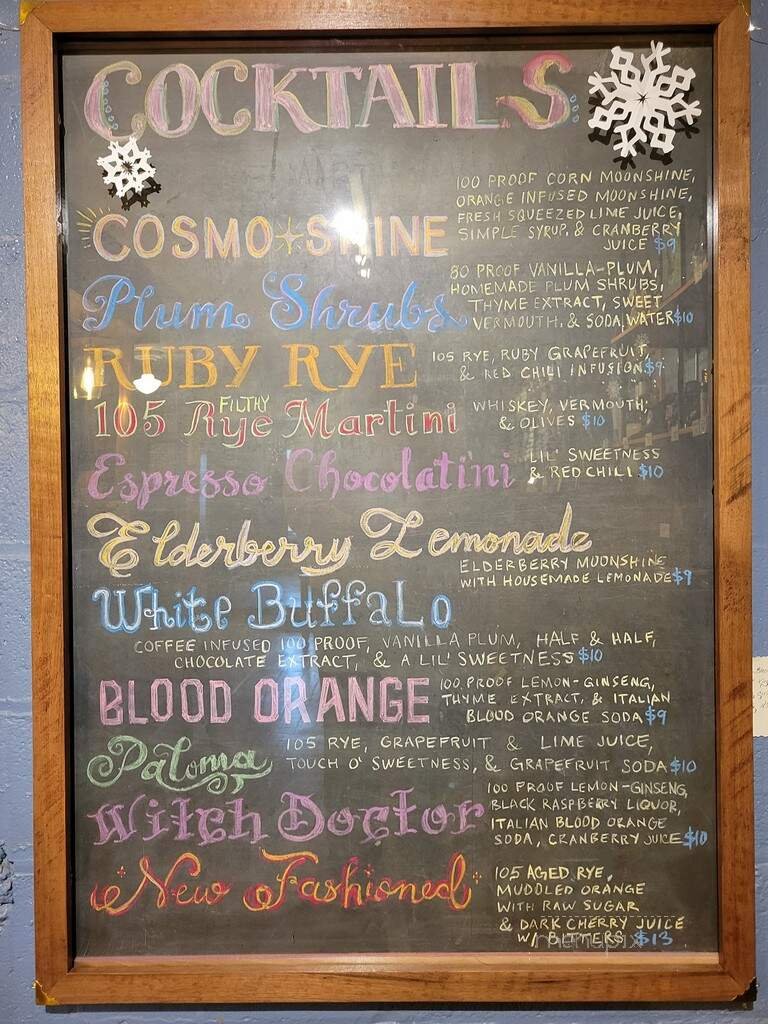 COCKTAILS
COSMO SHINE
100 PROOF CORN MOONSHINE,
ORANGE INFUSED MOONSHINE,
FRESH SQUEEZED LIME JUICE,
SIMPLE SYRUP, & CRANBERRY
JUICE $9
Plum Shrubs
80 PROOF VANILLA-PLUM,
HOMEMADE PLUM SHRUBS,
THYME EXTRACT, SWEET
VERMOUTH, & SODA WATER $10
RUBY RYE
105 RYE, RUBY GRAPEFRUIT,
& RED CHILI INFUSION $9
105 FILTHY Rye Martini
WHISKEY, VERMOUTH,
& OLIVES $10
Espresso Chocolatini
LIL' SWEETNESS
& RED CHILI $10
Elderberry Lemonade
ELDERBERRY MOONSHINE
WITH HOUSEMADE LEMONADE $9
White Buffalo
COFFEE INFUSED 100 PROOF, VANILLA PLUM, HALF & HALF,
CHOCOLATE EXTRACT, & A LIL' SWEETNESS $10
BLOOD ORANGE
100 PROOF LEMON-GINSENG,
THYME EXTRACT, & ITALIAN
BLOOD ORANGE SODA $9
Paloma
105 RYE, GRAPEFRUIT & LIME JUICE,
TOUCH O' SWEETNESS, & GRAPEFRUIT SODA $10
Witch Doctor
100 PROOF LEMON-GINSENG,
BLACK RASPBERRY LIQUOR,
ITALIAN BLOOD ORANGE
SODA, CRANBERRY JUICE $10
New Fashioned
105 AGED RYE,
MUDDLED ORANGE
WITH RAW SUGAR
& DARK CHERRY JUICE
W/ BITTERS $13
menupix